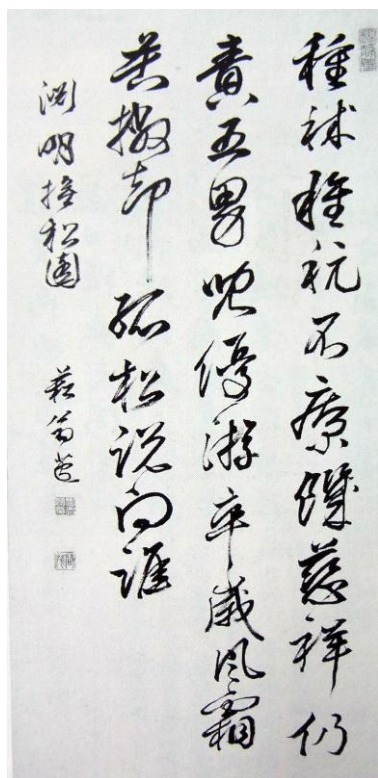 種秫種秔不療饑慈祥仍
責五男兒優游卒歳風霜
苦撇却孤松説向誰
淵明撫松圖
翁